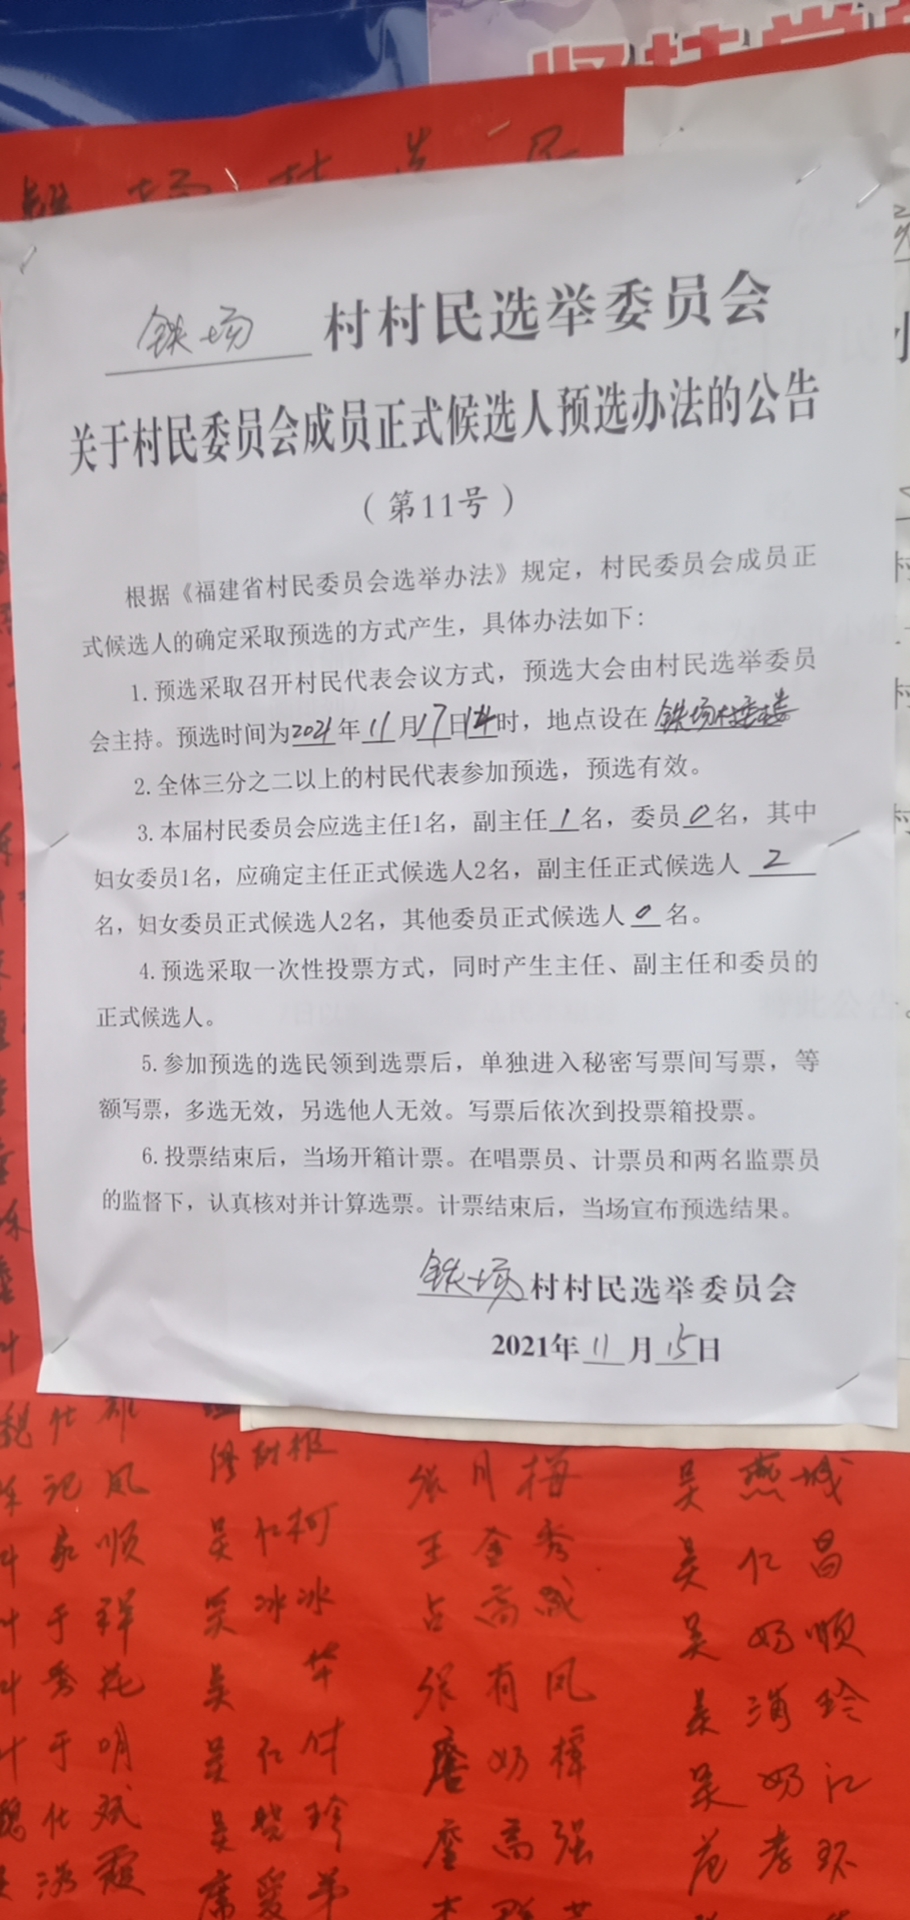 坚持党
铁场村选民
铁场 村村民选举委员会
关于村民委员会成员正式候选人预选办法的公告
（第11号）
根据《福建省村民委员会选举办法》规定，村民委员会成员正
式候选人的确定采取预选的方式产生，具体办法如下：
1.预选采取召开村民代表会议方式，预选大会由村民选举委员
会主持。预选时间为2021年11月17日 时，地点设在 铁场村委楼
2.全体三分之二以上的村民代表参加预选，预选有效。
3.本届村民委员会应选主任1名，副主任1名，委员0名，其中
妇女委员1名，应确定主任正式候选人2名，副主任正式候选人 2
名，妇女委员正式候选人2名，其他委员正式候选人 0 名。
4.预选采取一次性投票方式，同时产生主任、副主任和委员的
正式候选人。
5.参加预选的选民领到选票后，单独进入秘密写票间写票，等
额写票，多选无效，另选他人无效。写票后依次到投票箱投票。
6.投票结束后，当场开箱计票。在唱票员、计票员和两名监票员
的监督下，认真核对并计算选票。计票结束后，当场宣布预选结果。
铁场村村民选举委员会
2021年11月15日
张月梅 吴燕城
记凤 吴仁柯 王金秀 吴仁昌
家顺 吴冰冰 占高成 吴妈顺
于祥 吴华 张有凤 吴浦玲
秀花 吴仁付 詹妈樟 吴妈江
于明 吴 珍 詹高强 范孝环
仕斌
霞